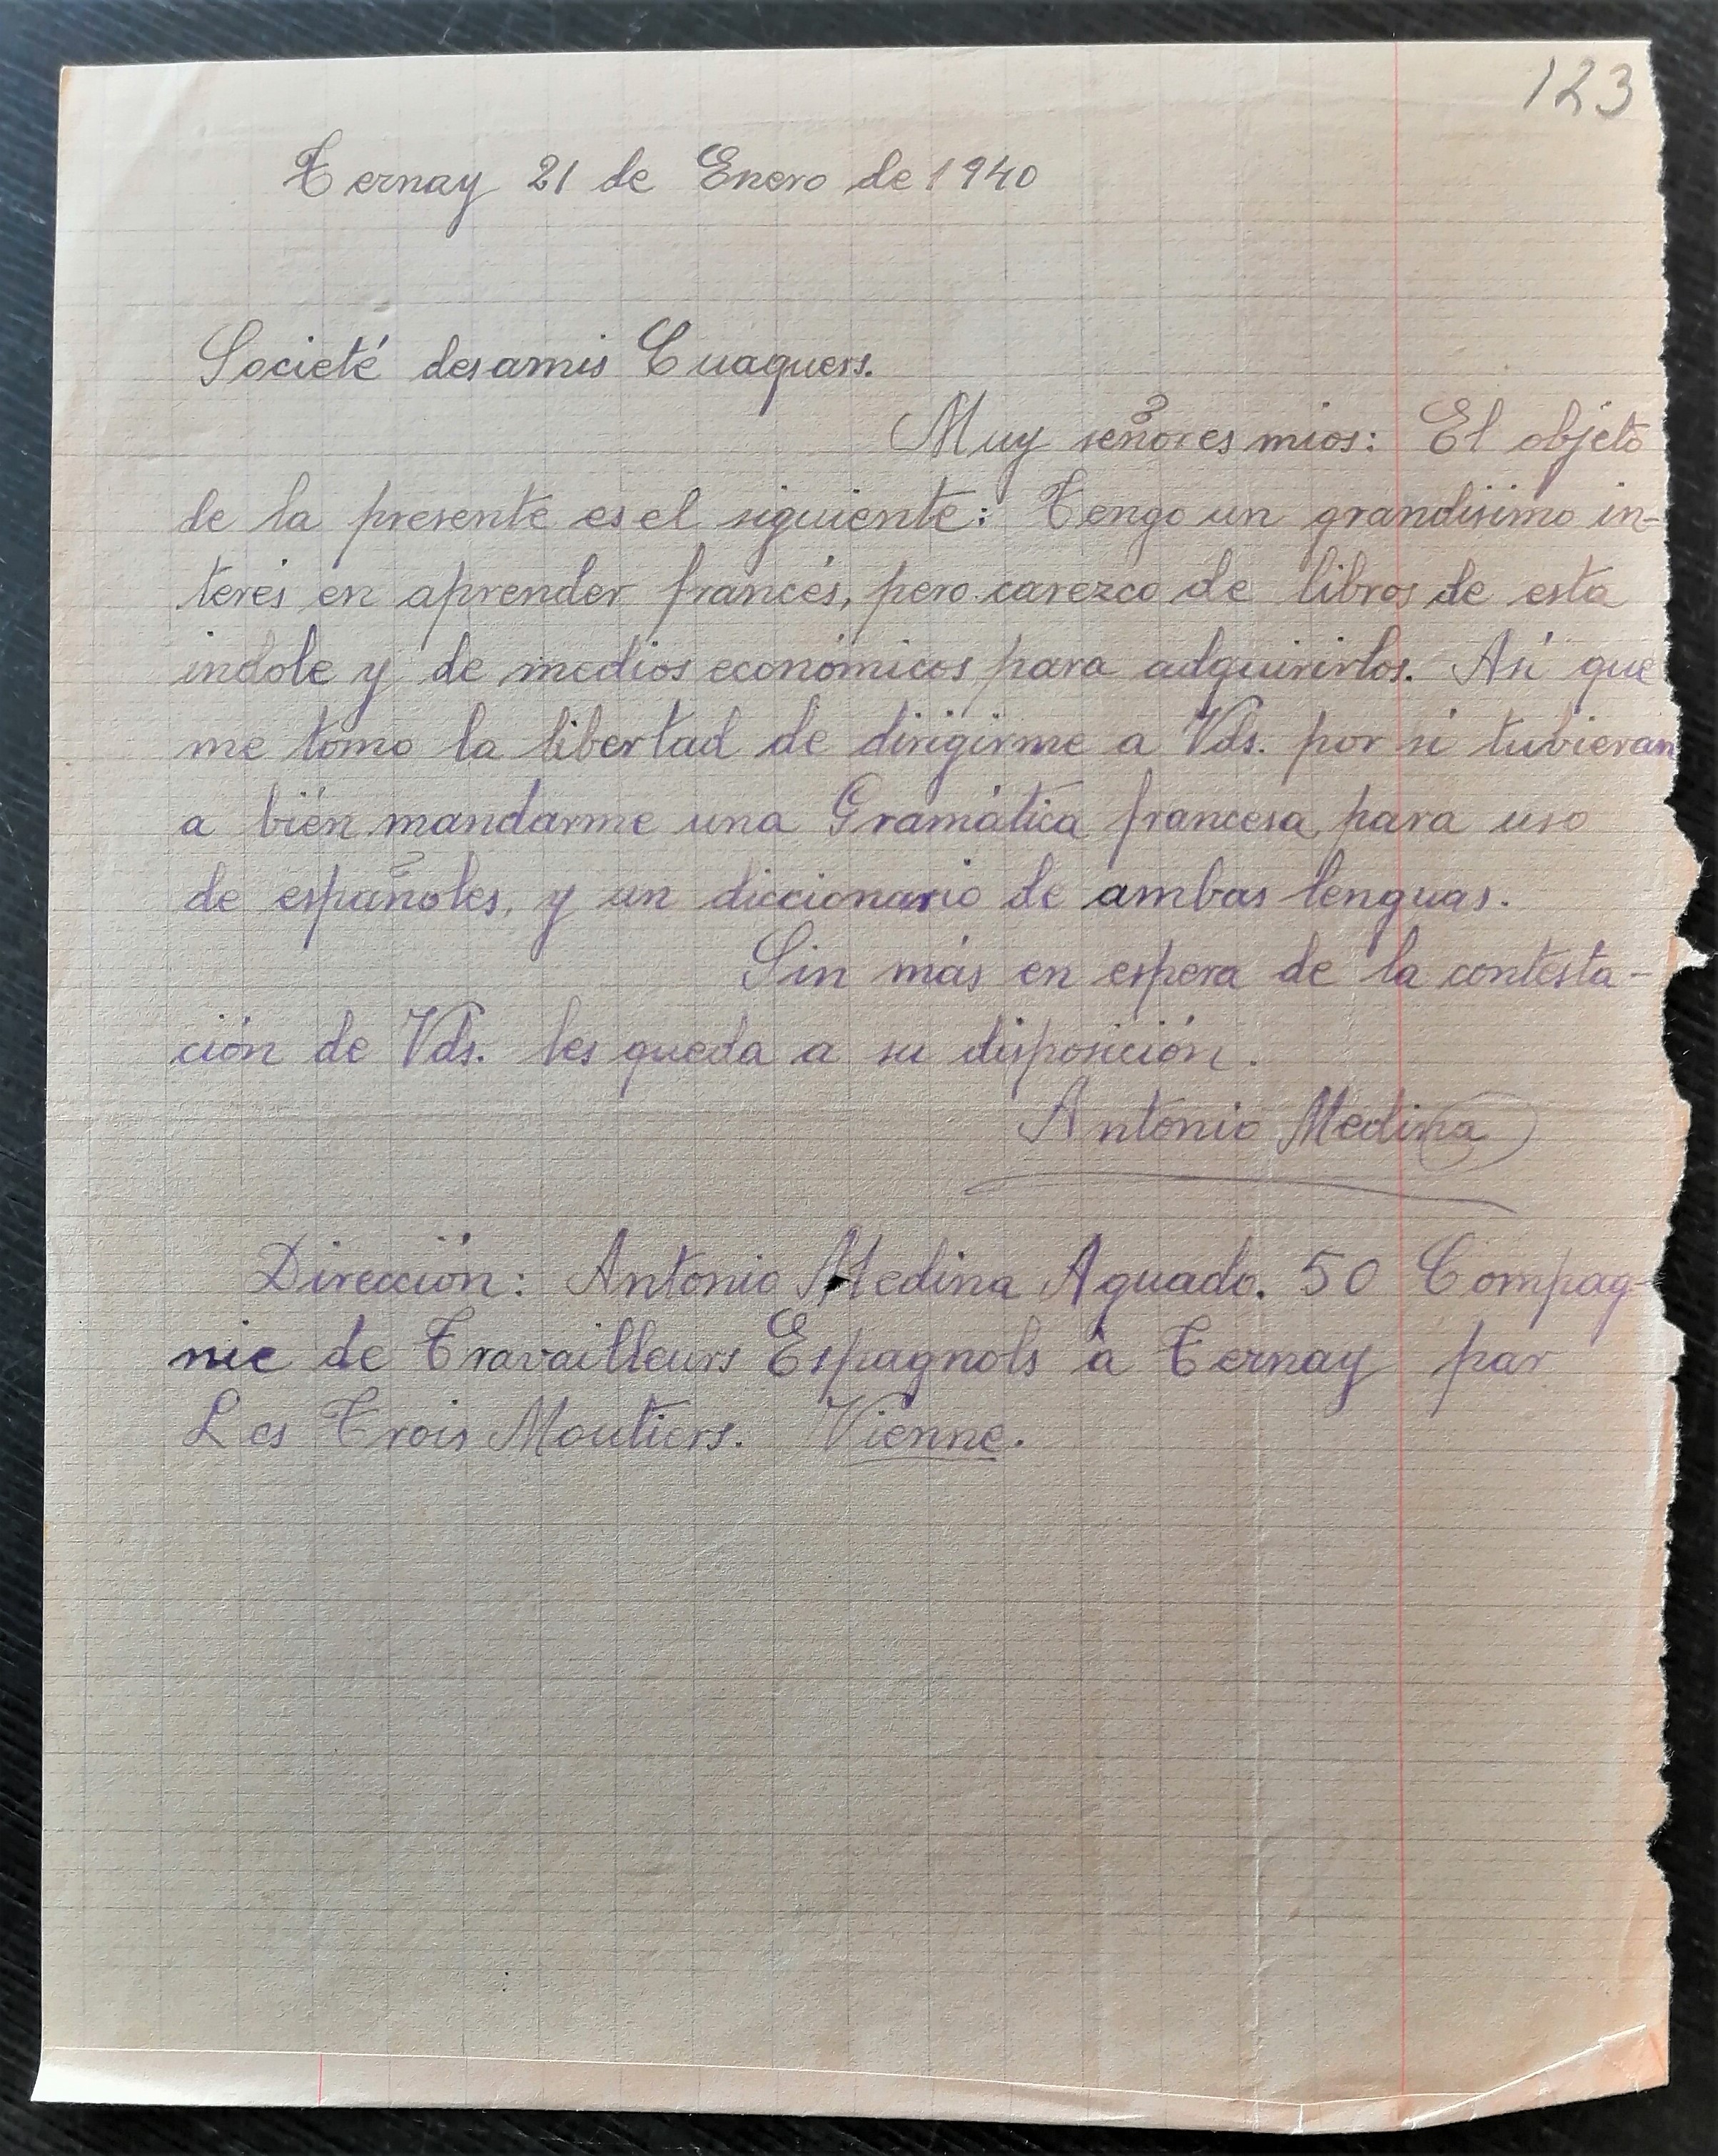 123
Ternay 21 de Enero de 1940
Societé des amis Cuaquers.
Muy señores mios: El objeto
de la presente es el siguiente: Tengo un grandisimo in-
terés en aprender francés, pero carezco de libros de esta
indole y de medios económicos para adquirirlos. Así que
me tomo la libertad de dirigirme a Vds. por si tubieran
a bién mandarme una Gramática francesa para uso
de españoles, y un diccionario de ambas lenguas.
Sin más en espera de la contesta-
ción de Vds. les queda a su disposición.
Antonio Medina
Dirección: Antonio Medina Aguado. 50 Compag-
nie de Travailleurs Espagnols à Ternay par
Les Trois Moutiers. Vienne.